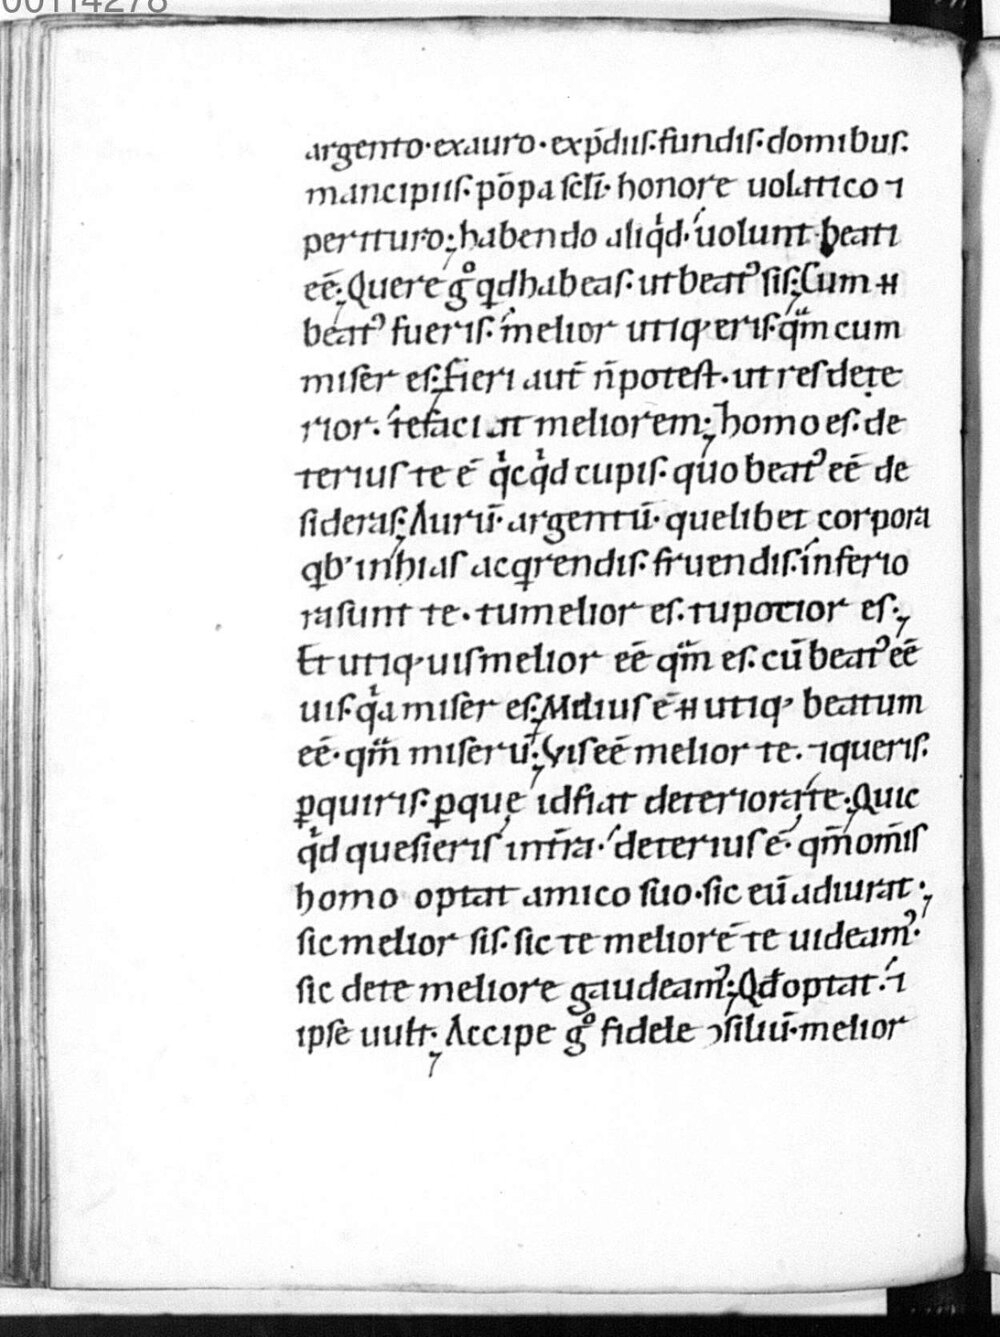 00114278
argento· exauro· exp̄diis· fundis· domibus·
mancipiis· pōpa scl̄i· honore uolatico ⁊
perituro; habendo aliqͥd· uolunt beati
eē; Quere gͦ qd habeas· ut beatꝰ sis; Cum N
beatꝰ fueris· melior utiqꝫ eris· qͣm cum
miser es; fieri aut̄ n̄ potest· ut res dete
rior· te faciat meliorem; homo es· de
terius te ē qͥcqͥd cupis· quo beatꝰ eē de
sideras; Aurū· argentū· quelibet corpora
qbꝰ inhias acqrendis· fruendis· inferio
ra sunt te· tu melior es· tu potior es;
Et utiqꝫ uis melior eē qͣm es· cū beatꝰ eē
uis· qͥa miser es; Melius ē N utiqꝫ beatum
eē· qͣm miserū; Vis eē melior te· ⁊ queris·
ꝑquiris· ꝑ quę id fiat deteriora te; Quic
qͥd quesieris in tr̄a· deterius ē· qm̄ om̄is
homo optat amico suo· sic eū adiurat;
sic melior sis· sic te meliorē te uideamꝰ·
sic de te meliore gaudeamꝰ; Qd̄ optat· ⁊
ipse uult; Accipe gͦ fidele ꝯsiliū· melior